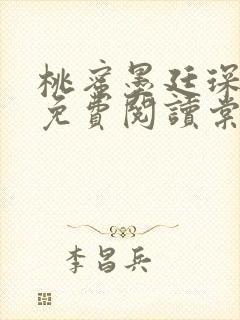 桃蜜墨廷琛
免費閱讀棠
李昌兵